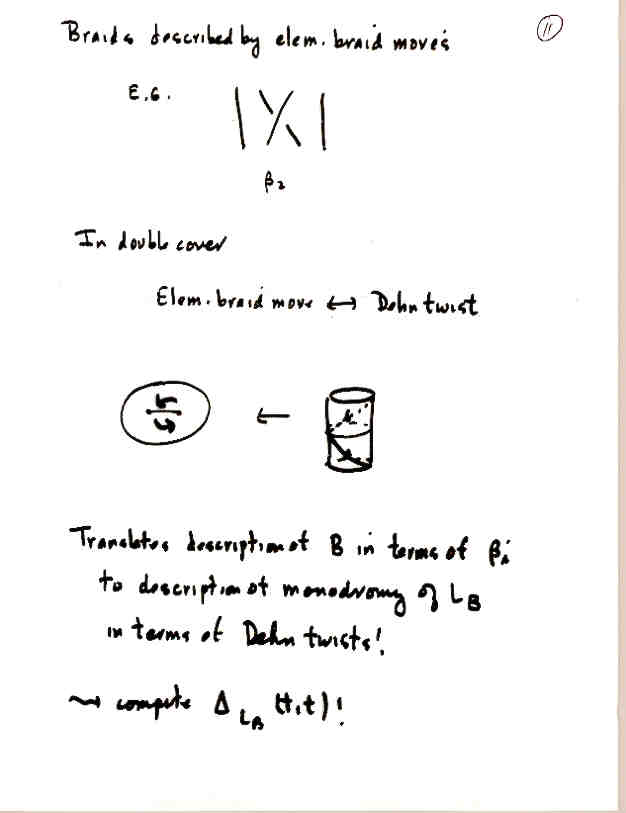 11
Braids described by elem. braid moves
E.G.
β2
In double cover
Elem. braid move ↔ Dehn twist
←
Translates description of B in terms of βi
to description of monodromy of LB
in terms of Dehn twists!
⇝ compute Δ LB (t,t)!